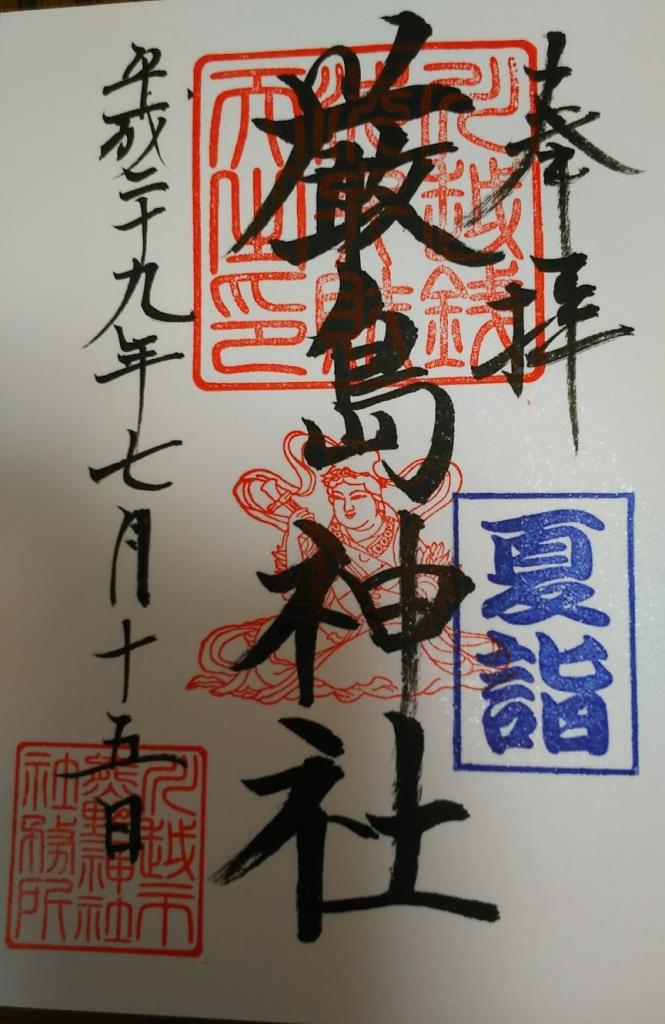 奉拝
川越銭
洗弁財
天之印
夏詣
厳島神社
平成二十九年七月十五日
川越市
熊野神社
社務所